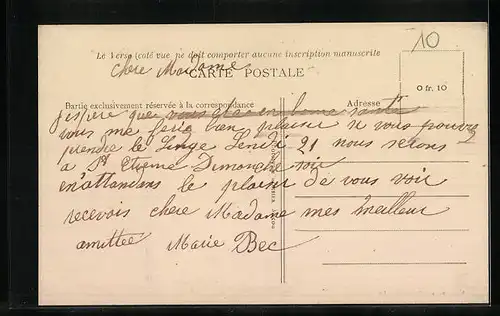 10
Le Verso (coté vue) ne doit comporter aucune inscription manuscrite
Chere Madame
CARTE POSTALE
0 fr. 10
Partie exclusivement réservée à la correspondance
Adresse
j'espere que vous etes en bonne santé
vous me ferié bien plaisir si vous pouvez
prendre le Linge Lendi 21 nous serons
a St Etienne Dimanche soir
en attendans le plaisir de vous voir
recevois chere Madame mes meilleur
amittee Marie Bec